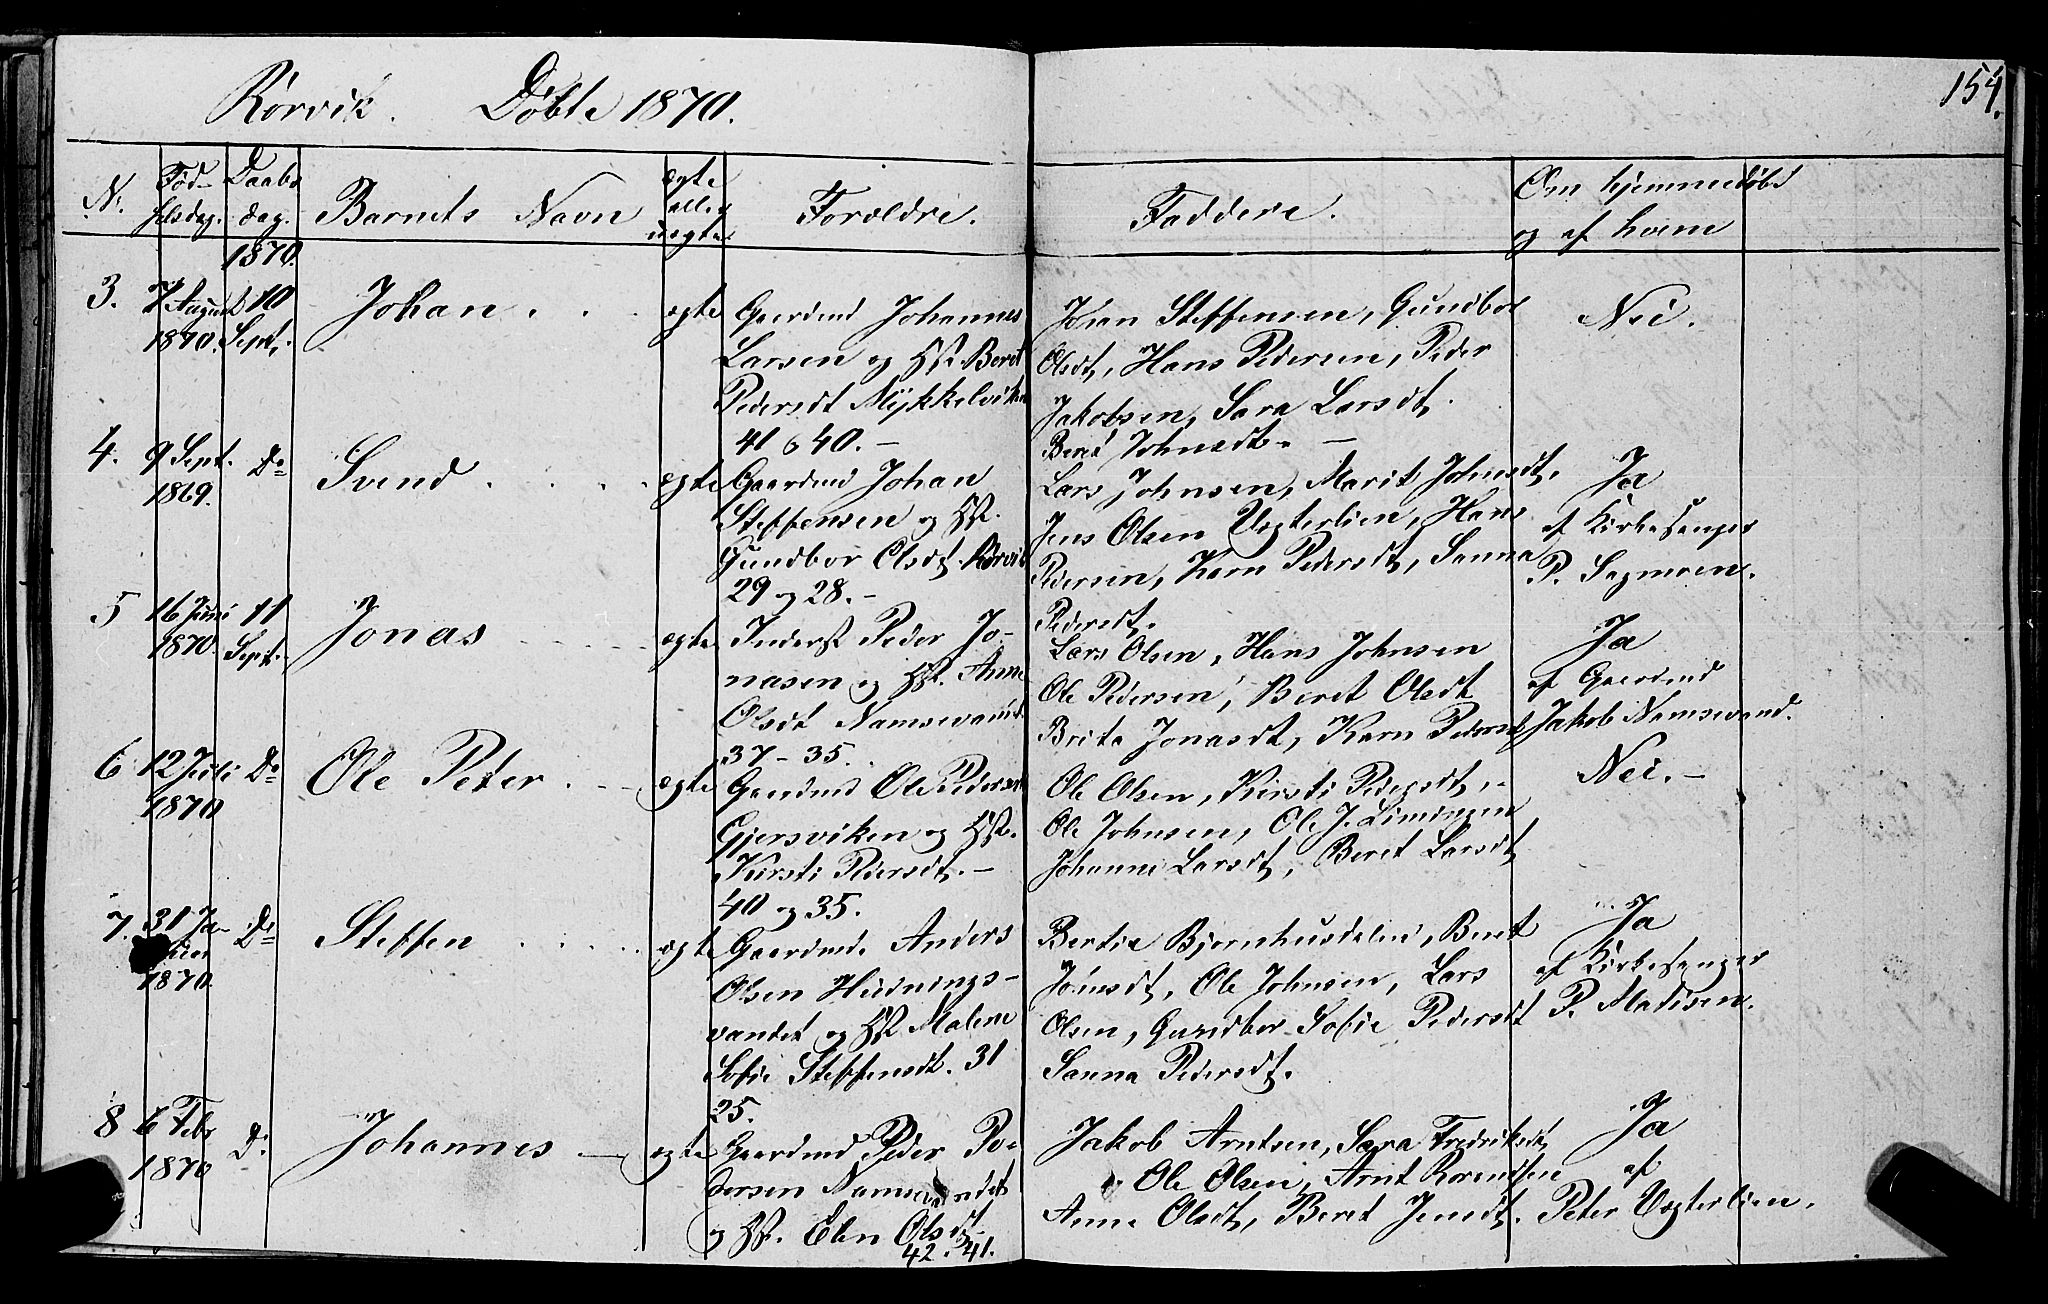 154.
Rørvik. Døbte 1870.
N. Fød- Daabs Barnets Navn ægte Forældre. Faddere. Om hjemmedøbt
selsdag. dag. eller og af hvem
1870. uægte
3. 7 August 10 Johan . . . ægte Gaardmd Johannes Johan Steffensen, Gundbor Nei.
1870. Sept. Larsen og Hst. Beret Olsdt, Hans Pedersen, Peder
Pedersdt Mykkelviken Jakobsen, Sara Larsdt.
41 & 40. – Beret Johnsdt. –
4. 9 Sept. Do Svend . . . . ægte Gaardmd Johan Lars Johnsen, Marit Johnsdt. Ja
1869. Steffensen og Hst. Jens Olsen Vegterlien, Hans af Kirkesanger
Gundbor Olsdt. Rørvik Pedersen, Karn Pedersdt, Sanna P. Sagmoen.
29 og 28. – Pedersdt.
5 16 Juni 11 Jonas ægte Inderst Peder Jo- Lars Olsen, Hans Johnsen Ja
1870. Sept. nasen og Hst. Anne Ole Pedersen, Beret Olsdt af Gaardmd
Olsdt Namsvand. Brita Jonasdt, Karn Pedersdt Jakob Namsvand.
37 – 35.
6 12 Juli Do Ole Peter . – ægte Gaardmd Ole Pedersen Ole Olsen, Kirsti Pedersdt, Nei. –
1870 Gjersviken og Hst. Ole Johnsen, Ole J. Limingen
Kirsti Pedersdt. – Johanne Larsdt, Beret Larsdt
40 og 35.
7. 31 Ja- Do Steffen . . . . . ægte Gaardmd. Anders Bertie Bjørnhusdalen, Beret Ja
nuar Olsen Hudnings- Jonsdt, Ole Johnsen, Lars af Kirkesanger
1870. vandet og Hst Malene Olsen, Gundbor Sofie Pedersdt P. Madsen.
Sofie Steffensdt. 31 Sanna Pedersdt.
25.
8 6 Febr Do Johannes – ægte Gaardmd Peder Pe- Jakob Arntsen, Sara Fredriksdt, Ja
1870 dersen Namsvandet Ole Olsen, Arnt Lorentsen af
og Hst. Elen Olsdt Anne Olsdt, Beret Jensdt. Peter Vegterlien.
42. 41.